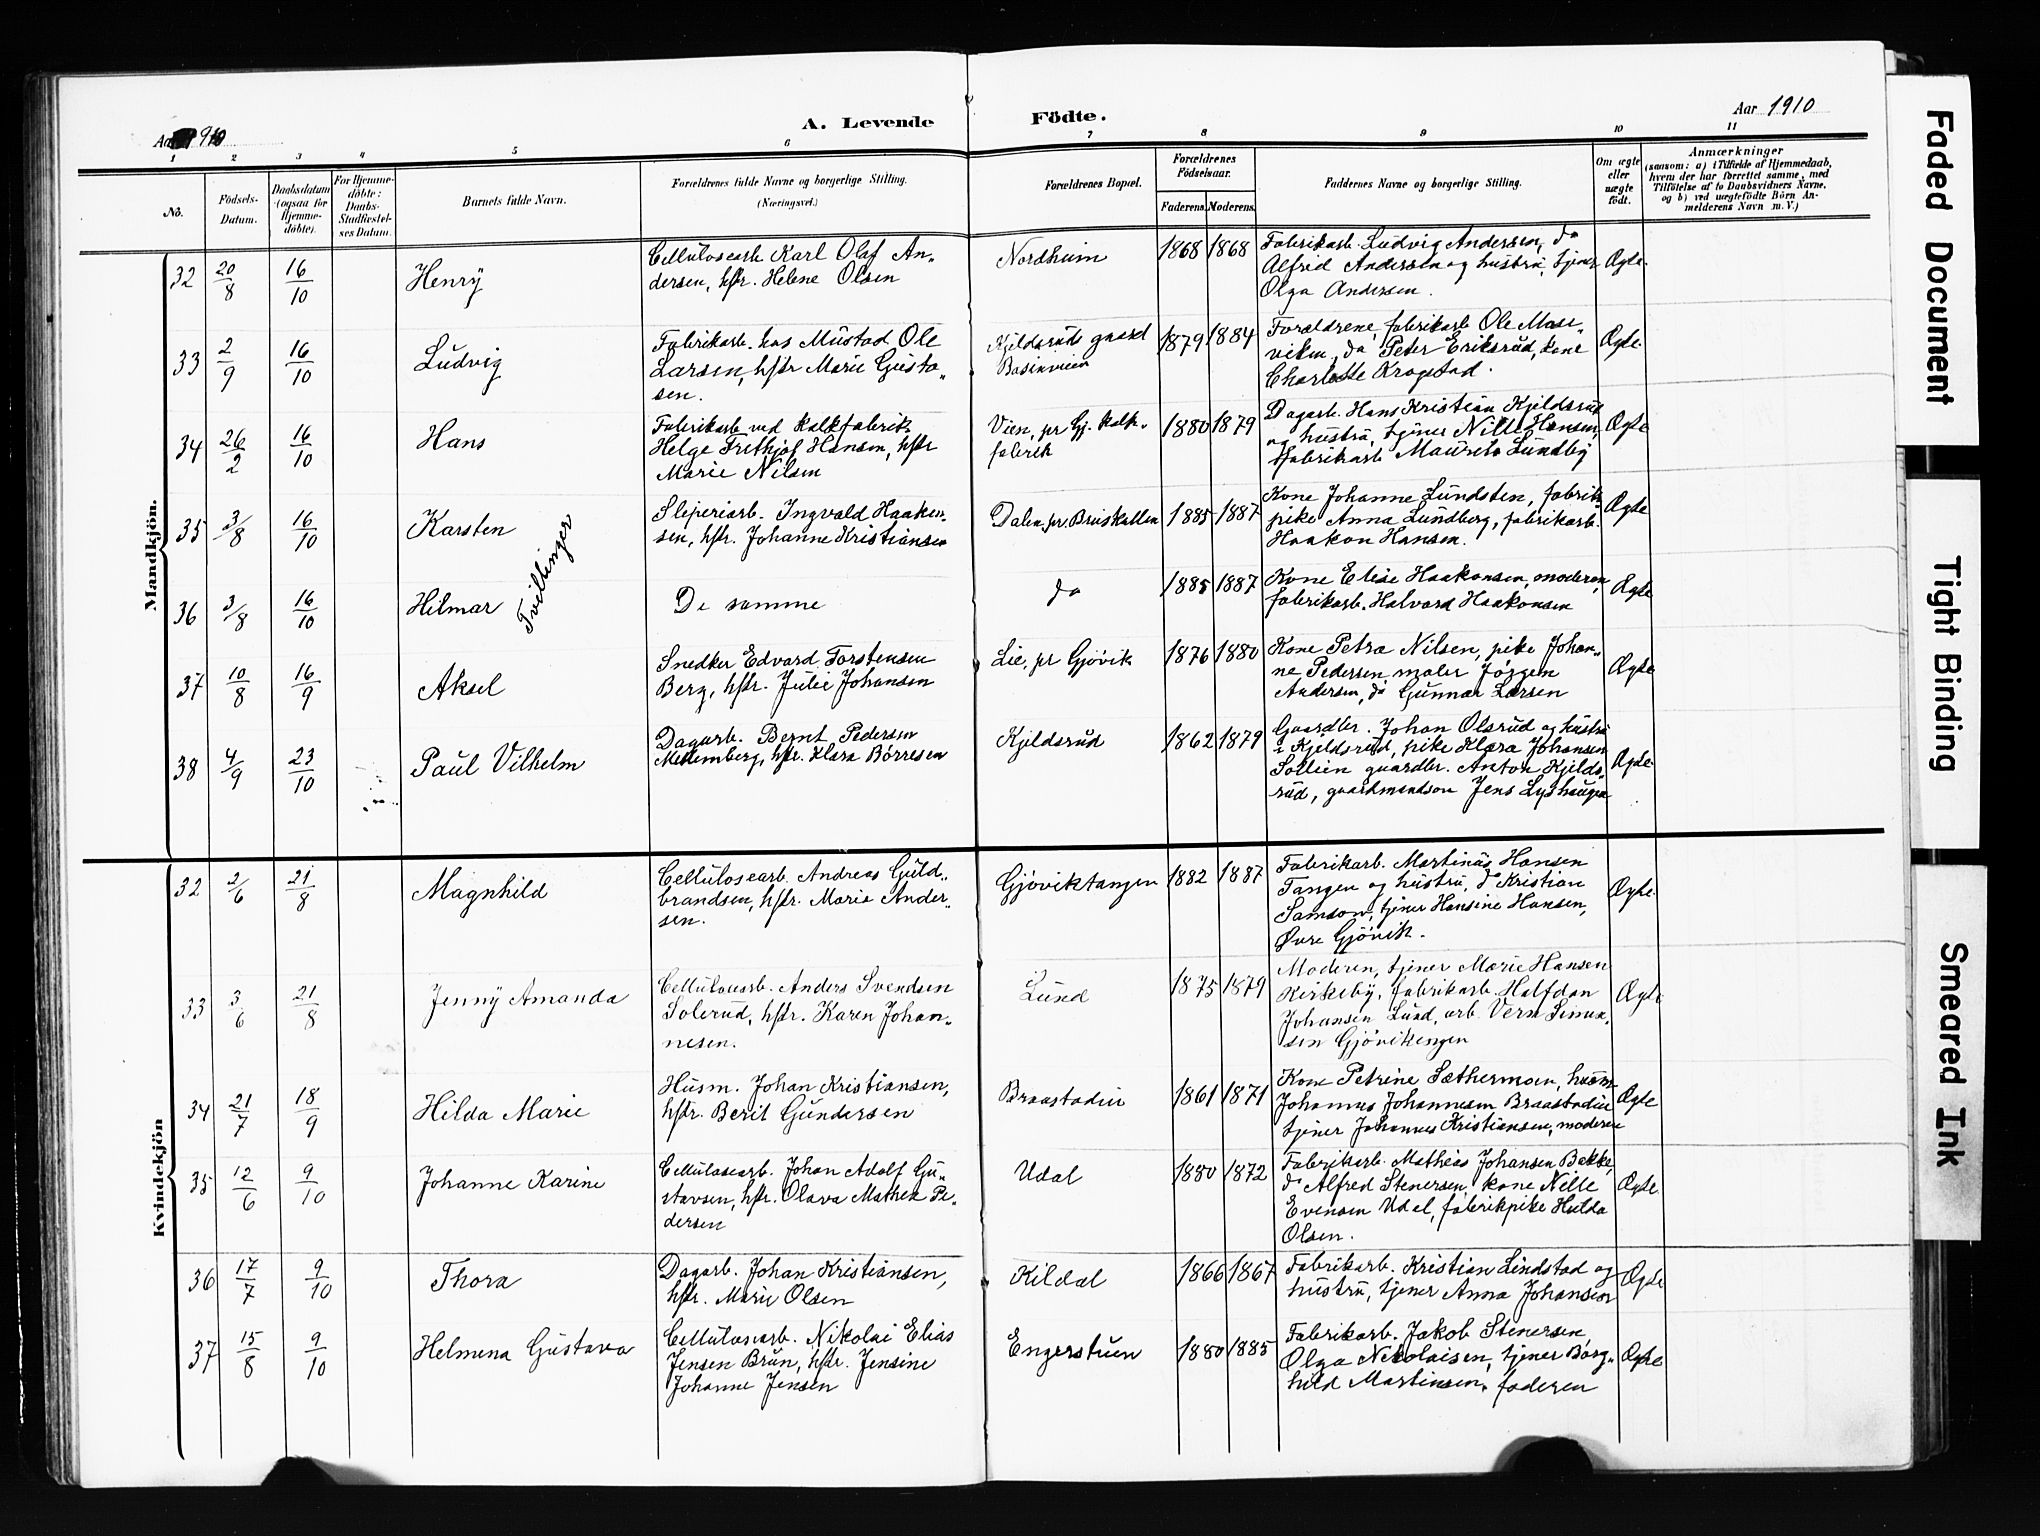 Aar 1910
A. Levende Födte.
Aar 1910
1 2 3 4 5 6 7 8 9 10 11
No.
Födsels-Datum.
Daabsdatum (ogsaa for Hjemme-döbte).
For Hjemme-döbte: Daabs-Stadfæstel-ses Datum.
Barnets fulde Navn.
Forældrenes fulde Navne og borgerlige Stilling.
(Næringsvei.)
Forældrenes Bopæl.
Forældrenes Födselsaar.
Faderens. Moderens.
Faddernes Navne og borgerlige Stilling.
Om ægte eller uægte födt.
Anmærkninger
(saasom: a) i Tilfælde af Hjemmedaab,
hvem der har forrettet samme, med
Tilföielse af to Daabsvidners Navne,
og b) ved uægtefödte Börn An-
melderens Navn m. V.)
Mandkjön.
32 20/8 16/10 Henry
Cellulosearb. Karl Olaf An-
dersen, hstr. Helene Olsen
Nordheim 1868 1868
Fabrikarb. Ludvig Andersen, do
Alfred Andersen og hustru, tjener
Olga Andersen.
Ægte.
33 2/9 16/10 Ludvig
Fabrikarb. hos Mustad Ole
Larsen, hstr Marie Gusta-
sen.
Kjeldsruds gaard
1879 1884
Forældrene, fabrikarb Ole Mase-
viken, do Peter Eriksrud, kone
Charlotte Krogstad.
Ægte.
34 26/2 16/10 Hans
Fabrikarb. ved Kalkfabrik
Helge Frithjof Hansen, hstr
Marie Nilsen
Vien, pr Gj. kalk-
fabrik
1880 1879
Dagarb. Hans Kristian Kjeldsrud
og hustru, tjener Nille Hansen,
fabrikarb Maurits Lundby
Ægte
35 3/8 16/10 Karsten
Tvillinger
Sliperiarb. Ingvald Haaken-
sen, hstr. Johanne Kristiansen
Dalen, pr Bruskallen 1885 1887
Kone Johanne Lundsten, fabrik-
pike Anna Lundberg, fabrikarb.
Haakon Hansen.
Ægte
36 3/8 16/10 Hilmar
De samme
do 1885 1887
Kone Elise Haakonsen, moderen,
fabrikarb. Halvard Haakonsen
Ægte
37 10/8 16/9 Aksel
Snedker Edvard Torstensen
Berg, hstr. Julie Johansen
Lie, pr Gjövik 1876 1880
Kone Petra Nilsen, pike Johan-
ne Pedersen, maler Jörgen
Andersen, do Gunnar Larsen
Ægte
38 4/9 23/10 Paul Vilhelm
Dagarb. Bernt Pedersen
Mellemberg, hstr. Klara Börresen
Kjeldsrud 1862 1879
Gaardbr. Johan Olsrud og hustru
Kjeldsrud, pike Klara Johansen
Sollien gaardbr. Anton Kjelds-
rud, gaardmandsön Jens Lyshaugen
Ægte.
Kvindekjön
32 2/6 21/8 Magnhild
Cellulosearb. Andreas Guld-
brandsen, hstr. Marie Ander-
sen.
Gjöviktangen 1882 1887
Fabrikarb. Martinus Hansen
Tangen og hustru, do Kristian
Samson, tjener Hansine Hansen,
Øvre Gjövik.
Ægte.
33 3/6 21/8 Jenny Amanda
Cellulosearb. Anders Svendsen
Solerud, hstr. Karen Johan-
nesen.
Lund 1875 1879
Moderen, tjener Marie Hansen
Kirkeby, fabrikarb. Halfdan
Johansen Lund, arb. Vern Simen-
sen Gjövikengen
Ægte
34 21/7 18/9 Hilda Marie
Husm. Johan Kristiansen,
hstr. Berit Gundersen
Braastadeie 1861 1871
Kone Petrine Sæthermoen, husm.
Johannes Johannesen Braastadeie
tjener Johannes Kristiansen, moderen
Ægte
35 12/6 9/10 Johanne Karine
Cellulosearb. Johan Adolf Gu-
stavsen, hstr. Olava Mathea Pe-
dersen
Udal 1880 1872
Fabrikarb. Mathias Johansen Bakke,
do Alfred Stenersen, kone Nille
Evensen Udal, fabrikpike Hulda
Olsen.
Ægte.
36 17/7 9/10 Thora
Dagarb. Johan Kristiansen,
hstr. Marie Olsen
Kildal 1866 1867
Fabrikarb. Kristian Lindstad og
hustru, tjener Anna Johansen
Ægte
37 15/8 9/10 Helmina Gustava
Cellulosearb. Nikolai Elias
Jensen Brun, hstr. Jensine
Johanne Jensen
Engerstuen 1880 1885
Fabrikarb. Jakob Stenersen,
Olga Nikolaisen, tjener Borg-
hild Martinsen, faderen
Ægte
Faded Document
Tight Binding
Smeared Ink